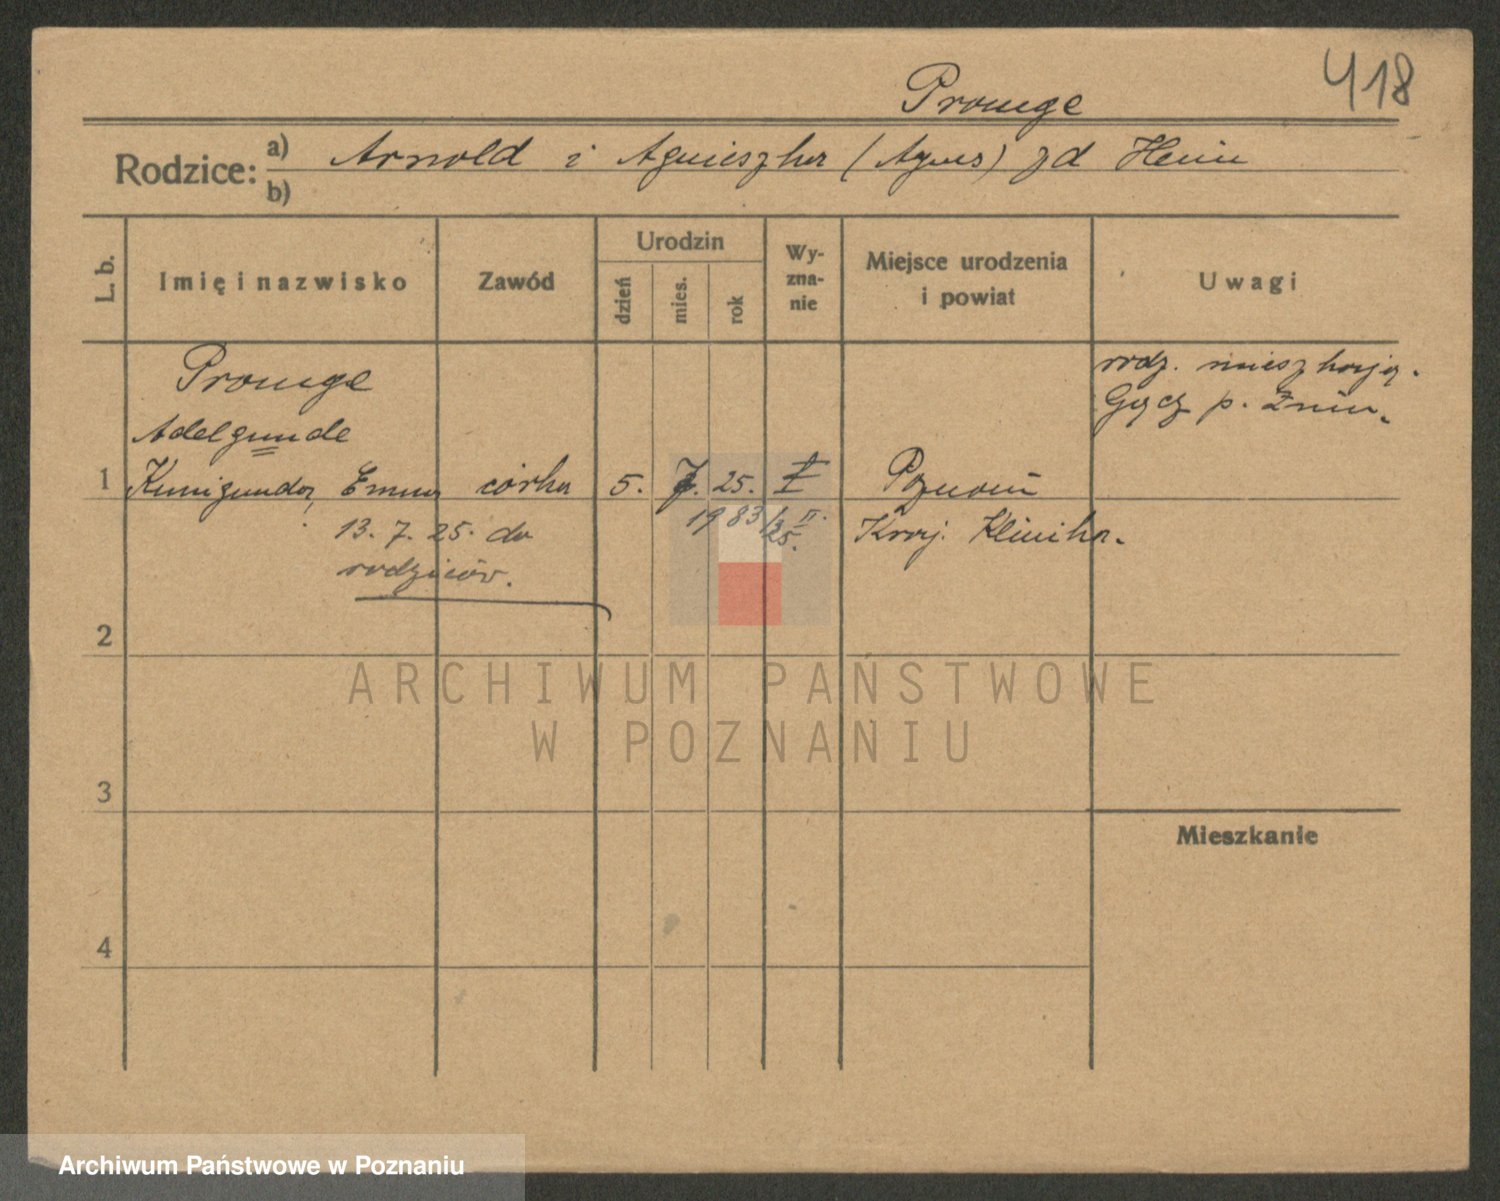 418
Promge
Rodzice: a) Arnold i Agnieszka (Agnes) zd Hein
b)
L. b.
Imię i nazwisko
Zawód
Urodzin
dzień
mies.
rok
Wy-
zna-
nie
Miejsce urodzenia
i powiat
Uwagi
Promge
Adelgunde
1 Kunigunda, Emma córka 5. 7. 25. Poznań
13. 7. 25. do
rodziców.
1983/25. II.
Kraj. Klinika.
rodz. mieszkają.
p. Żnin.
2
3
4
Mieszkanie
ARCHIWUM PAŃSTWOWE
W POZNANIU
Archiwum Państwowe w Poznaniu